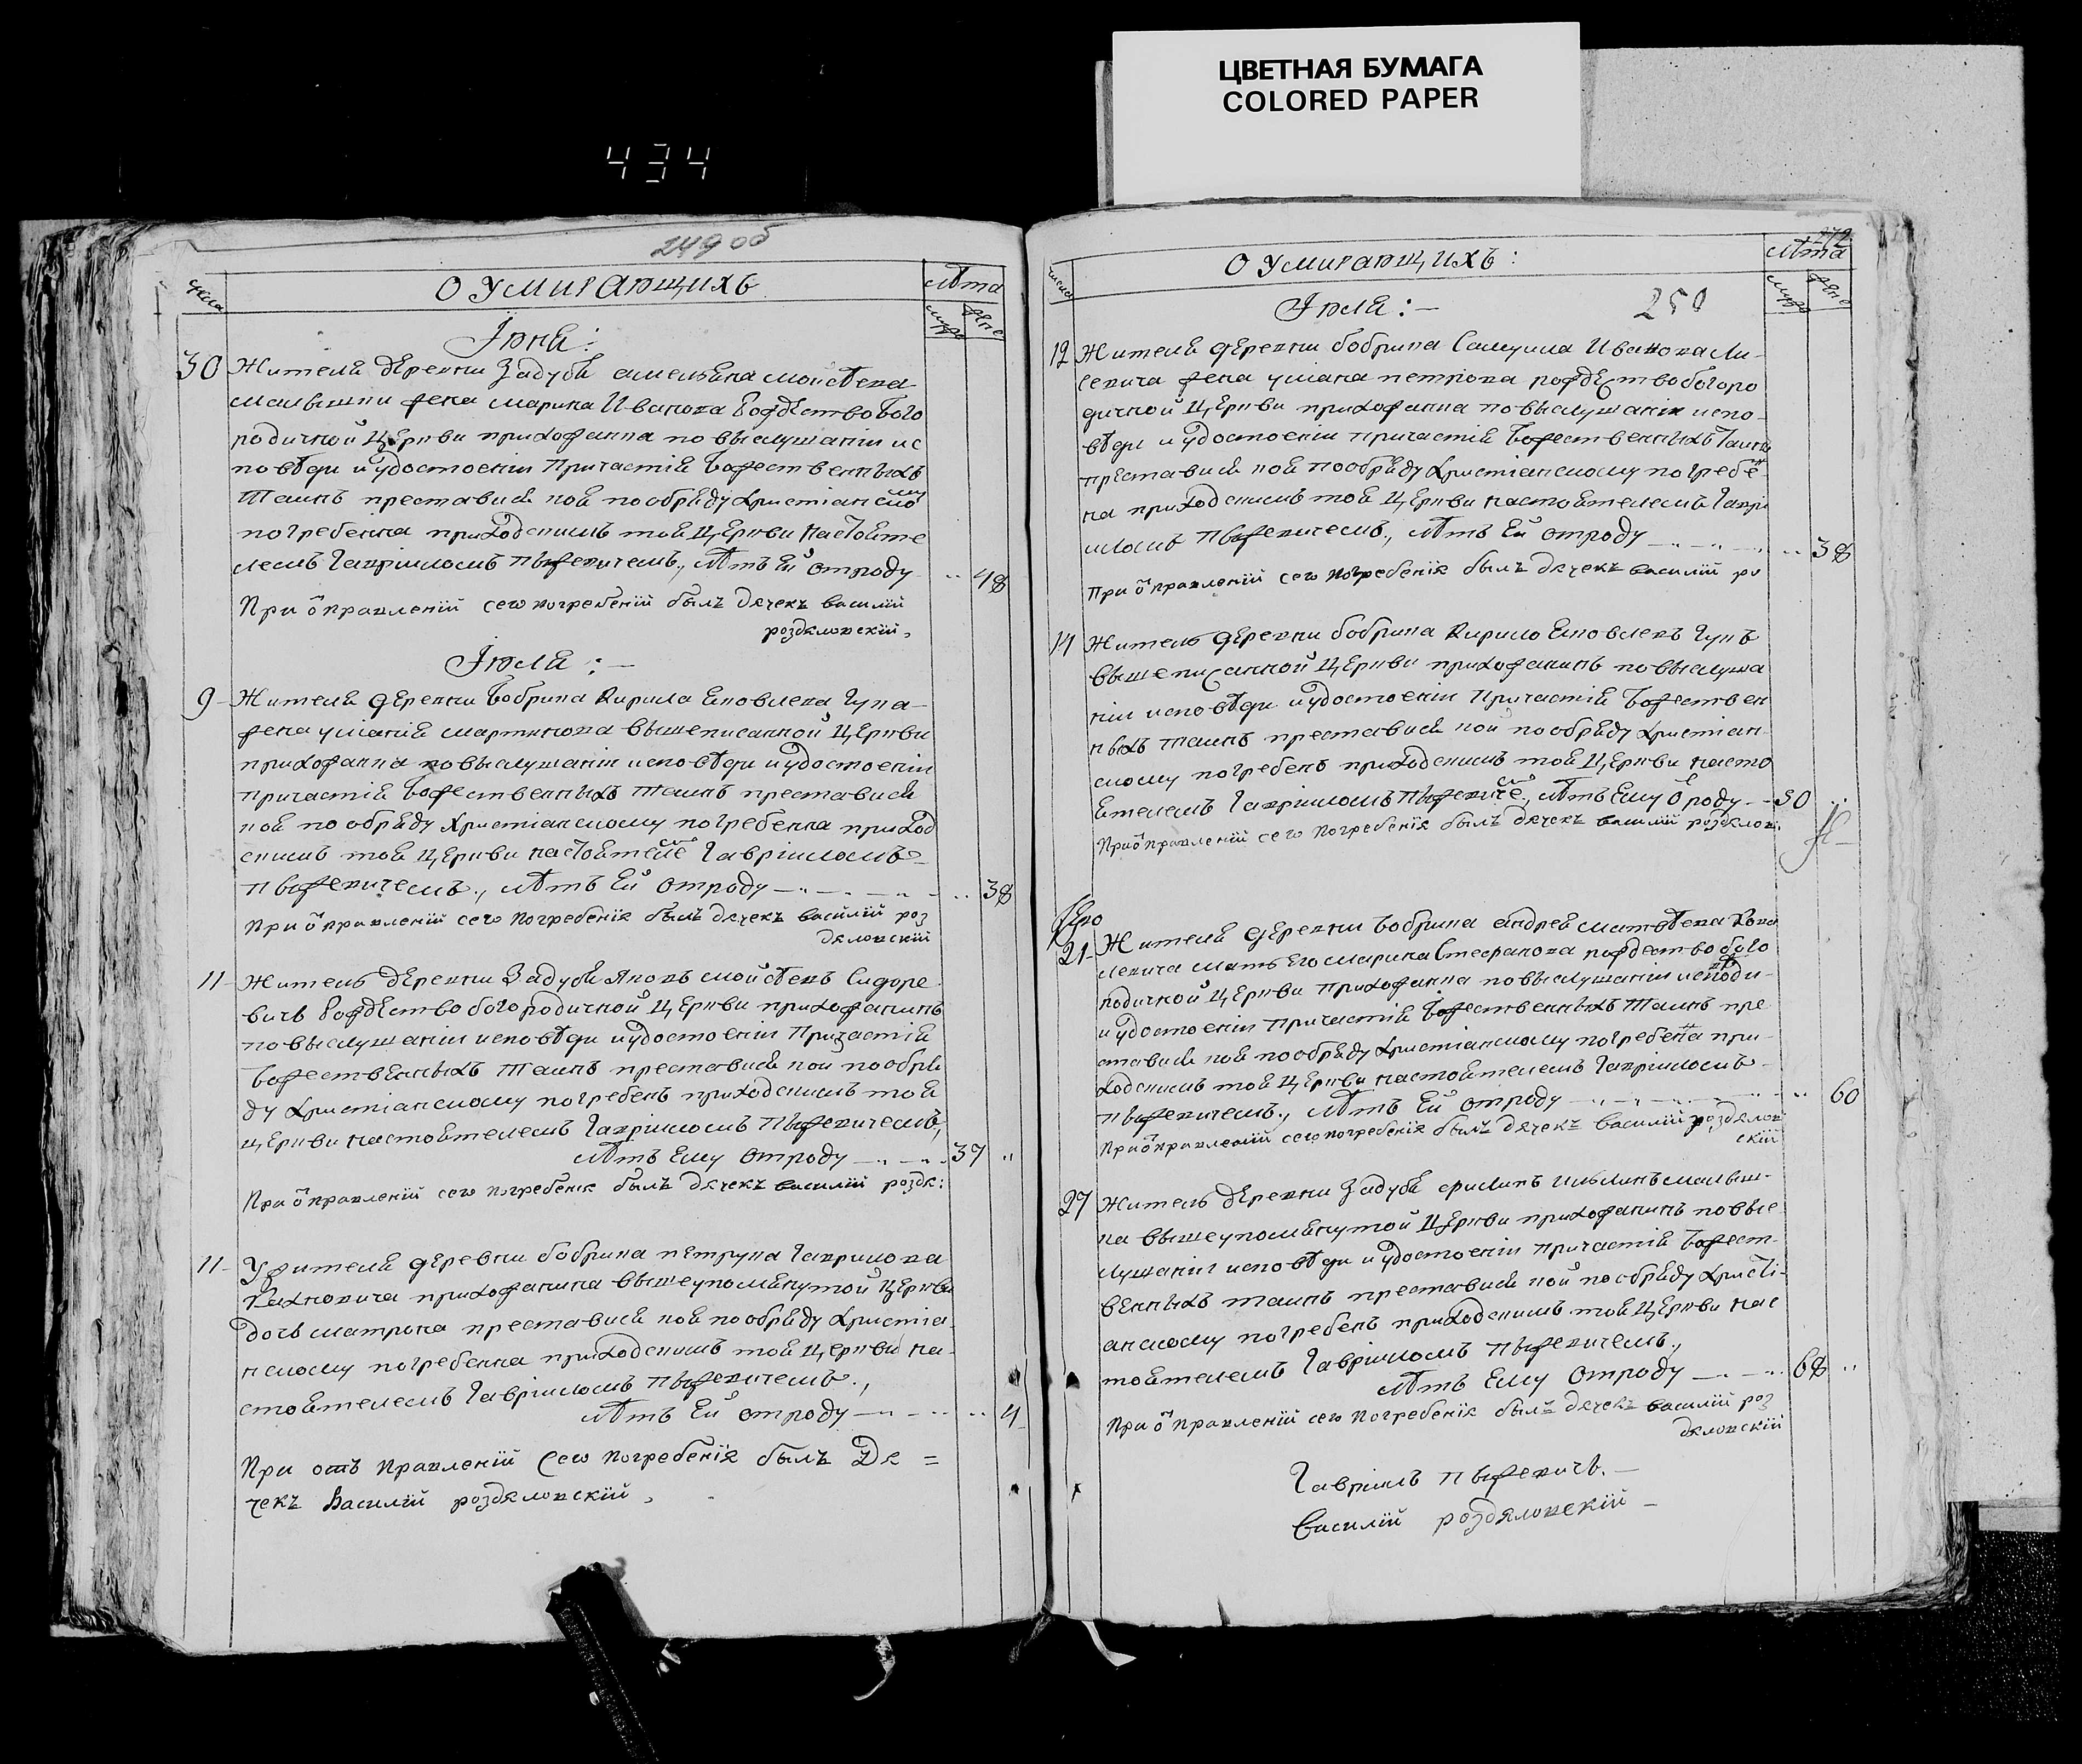 ЦВЕТНАЯ БУМАГА
COLORED PAPER
434
249об
числа
О Умирающихъ
лѣта
муж
жене
Іюня:
30 Жителя деревни Задубя Амельяна Мойсѣева
Малышки жена Марина Иванова Рождество Бого
родичной Церкви прихожанка по выслушаніи ис
повѣди и удостоеніи Причастія Божественныхъ
Таинъ преставися коя по обряду христіанскому
погребенна приходскимъ тоя Церкви настояте
лемъ Гавріиломъ Пыжевичемъ, лѣтъ Ей отроду 48
При отправленій сего погребеній былъ Дячекъ Василій
роздяловскій.
Іюля:
9 Жителя деревни Бобрика Кирила Яковлева Гука
жена Ульянія Мартинова вышеписанной Церкви
прихожанка по выслушаніи исповѣди и удостоеніи
Причастія Божественныхъ Таинъ преставися
коя по обряду Христіанскому погребенна приход
скимъ тоя Церкви настоятелемъ Гавріиломъ
Пыжевичемъ, лѣтъ Ей отроду 38
При отправленій сего Погребенія былъ Дячекъ Василій роз
дяловскій
11 Житель деревни Задубя Яковъ Мойсѣевъ Сидоре
вичъ Рождество Богородичной Церкви прихожанинъ
по выслушаніи исповѣди и удостоеніи Причастія
Божественныхъ Таинъ преставися кои по обря
ду христіанскому погребенъ приходскимъ тоя
Церкви настоятелемъ Гавріиломъ Пыжевичемъ,
лѣтъ Ему отроду 37
При отправленій сего погребенія былъ Дячекъ Василій роздя:
11 У жителя деревни Бобрика Петрука Гаврилова
прихожанина вышеупомянутой Церкви
дочь Матрона преставися коя по обряду христіа
нскому погребенна приходскимъ тоя Церкви на
стоятелемъ Гавріиломъ Пыжевичемъ,
лѣтъ Ей отроду 4
При отъ правленій сего погребенія былъ Дя =
чекъ Василій роздяловскій,
числа
О Умирающихъ:
лѣта
муж
жене
Іюля:
250
12 Жителя деревни Бобрика Самуила Иванова Ли
севича жена Улиана Петрова Рождество Богоро
дичной Церкви прихожанка по выслушаніи испо
вѣди и удостоеніи причастія Божественныхъ Таинъ
преставися коя по обряду христіанскому погребен
на приходскимъ тоя Церкви настоятелемъ Гаврі
иломъ Пыжевичемъ, лѣтъ Ей отроду 38
При отправленій сего погребенія былъ Дячекъ Василій ро
14 Житель деревни Бобрика Кирило Яковлевъ Гукъ
вышеписанной Церкви прихожанинъ по выслуша
ніи исповѣди и удостоеніи Причастія Божествен
ныхъ Таинъ преставися кои по обряду христіан
скому погребенъ приходскимъ тоя Церкви насто
ятелемъ Гавріиломъ Пыжевичемъ, лѣтъ Ему отроду 50
При отправленій сего Погребенія былъ Дячекъ Василій роздялов:
21 Жителя деревни Бобрика Андрея Матвѣева
левича мать Его Марина Стефанова Рождество Бого
родичной Церкви прихожанка по выслушаніи исповѣди
и удостоеніи причастія Божественныхъ Таинъ пре
ставися коя по обряду христіанскому погребенна при
ходскимъ тоя Церкви настоятелемъ Гавріиломъ
Пыжевичемъ, лѣтъ Ей отроду 60
При отправленій сего погребенія былъ Дячекъ Василій роздялов
скій
27 Житель деревни Задубя Филипъ Ильинъ Малыш
ка вышеупомянутой Церкви прихожанинъ по вы
слушаніи исповѣди и удостоеніи причастія Божест
венныхъ Таинъ преставися кой по обряду Христі
анскому погребенъ приходскимъ тоя Церкви нас
тоятелемъ Гавріиломъ Пыжевичемъ,
лѣтъ Ему отроду 68
При отправленій сего Погребенія былъ Дячекъ Василій роз
дяловскій
Гавріилъ Пыжевичъ.
Василій роздяловскій